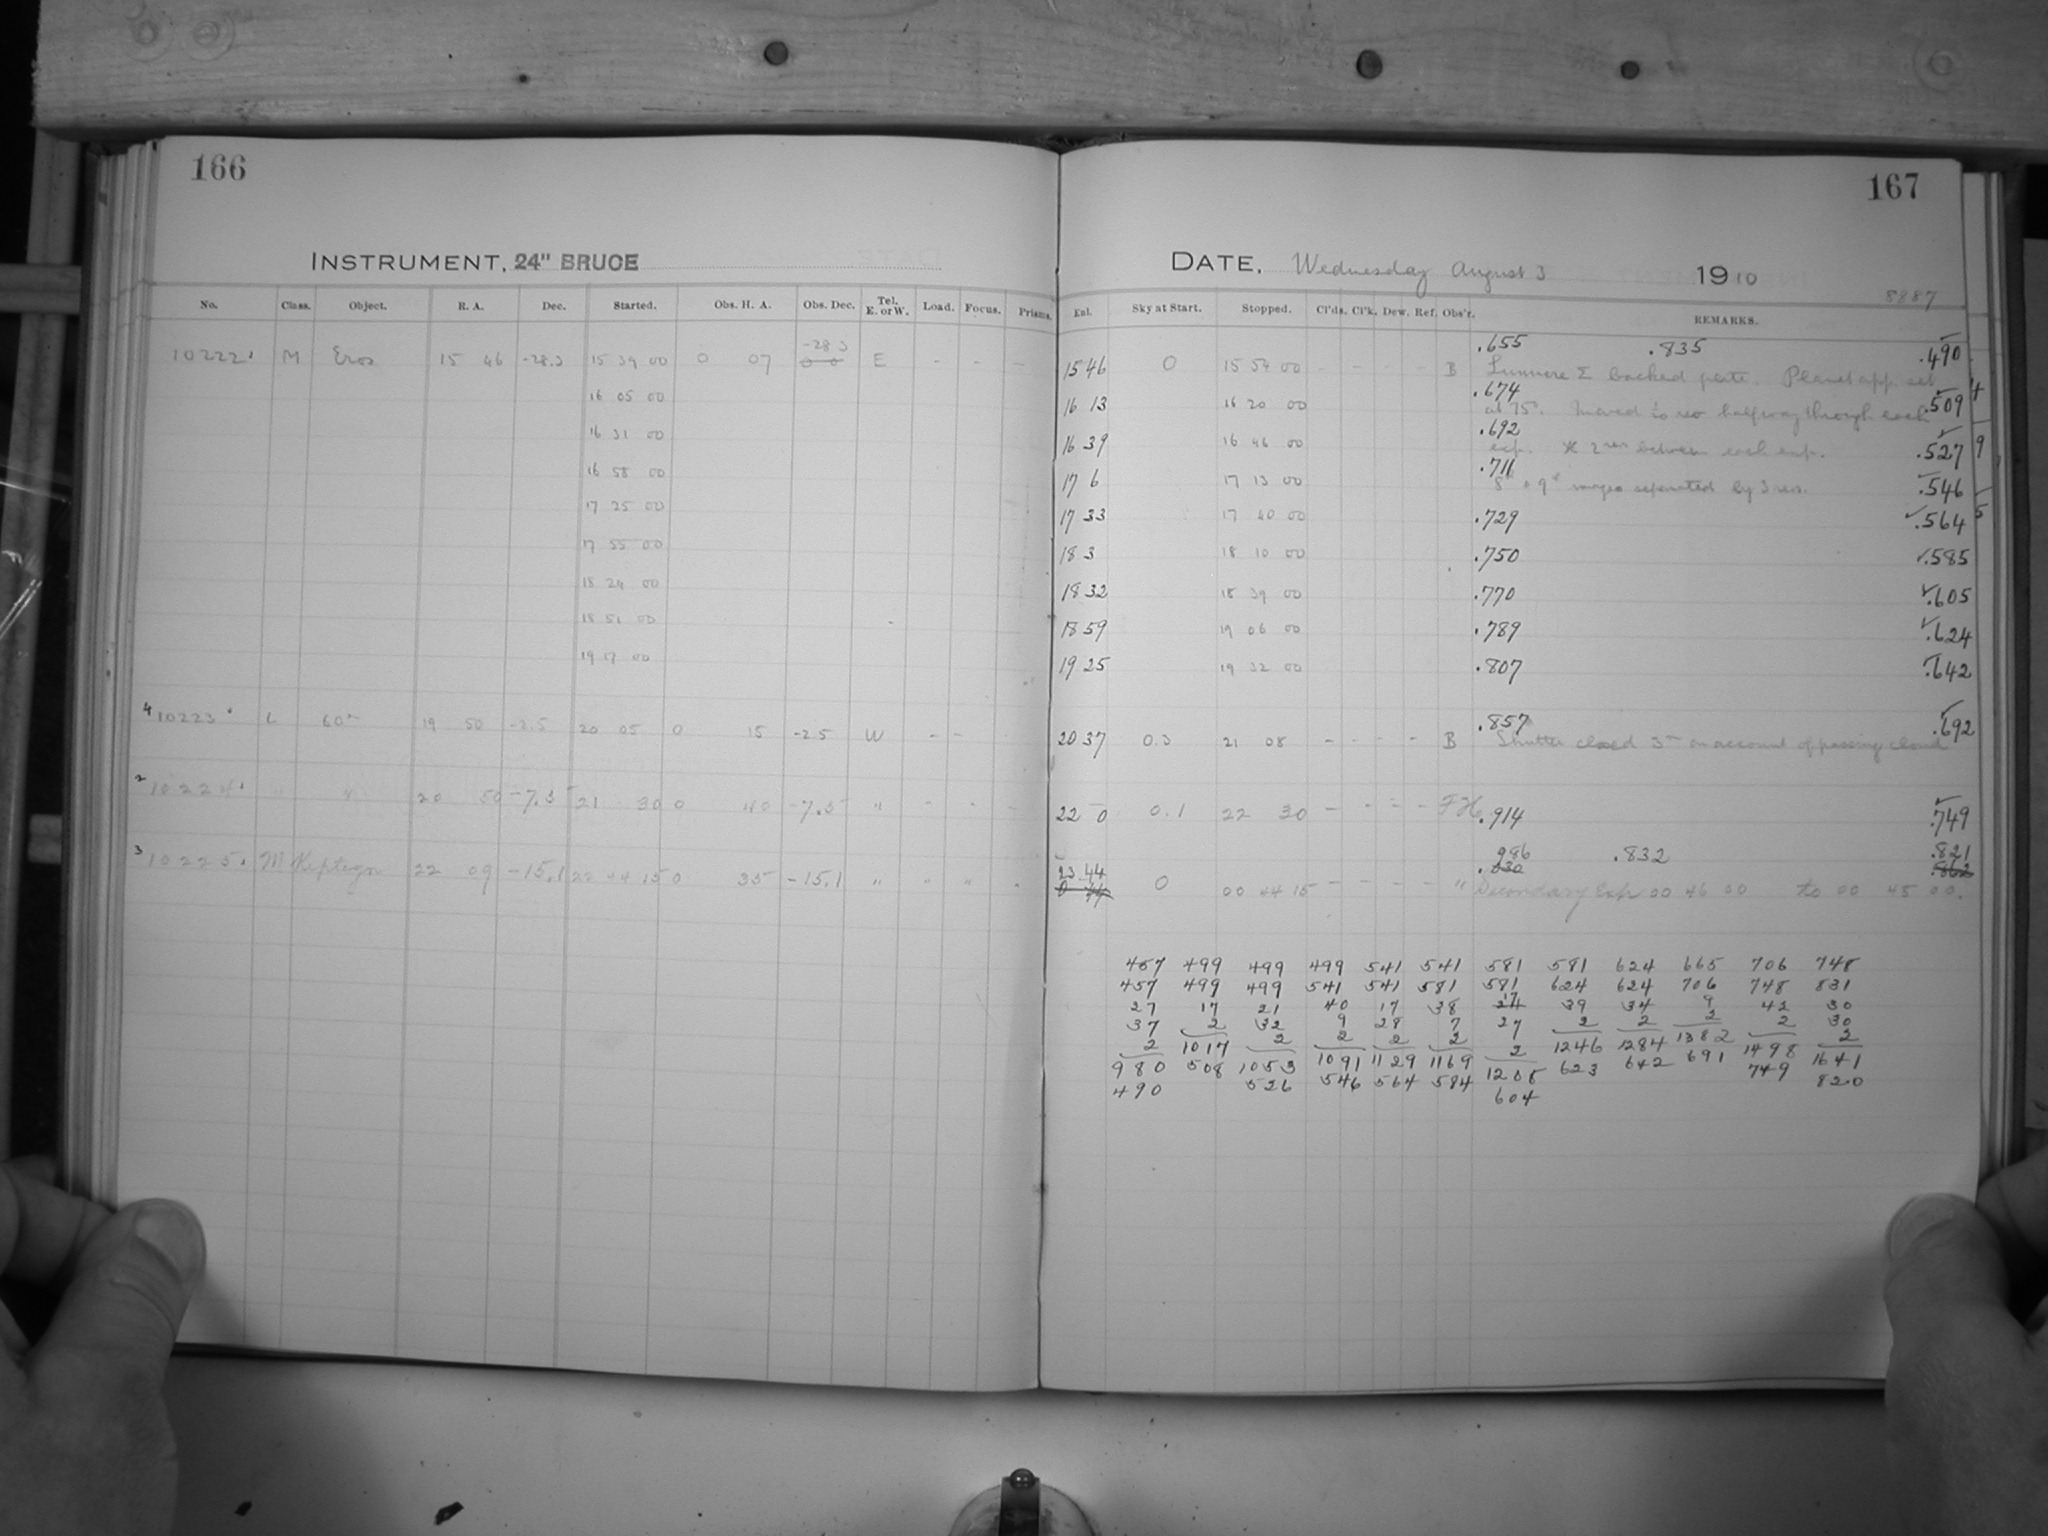 166
INSTRUMENT, 24" BRUCE
No. Class. Object. R. A. Dec. Started. Obs. H. A. Obs. Dec. Tel. E. or W. Load. Focus. Prisms.
-28.3
10222 M Eros 15 46 -28.3 15 39 00 0 07 0 0 E - - -
16 05 00
16 31 00
16 58 00
17 25 00
17 55 00
18 24 00
18 51 00
19 17 00
4 10223 L 60m 19 50 -2.5 20 05 0 15 -2.5 W - - -
2 10224 " " 20 50 -7.5 21 30 0 40 -7.5 " - - -
3 10225 M Kapteyn 22 09 -15.1 22 44 15 0 35 -15.1 " " "
167
DATE, Wednesday August 3 1910
8887
Enl. Sky at Start. Stopped. Cl'ds. Cl'k. Dew. Ref. Obs'r. REMARKS.
.655 .835 .490
15 46 0 15 54 00 - - - - B Lumiere Σ backed plate. Planet app. set
.674 .509 4
16 13 16 20 00 at 75°. Moved ½ rev halfway through each
.692
16 39 16 46 00 exp. * 2 rev between each exp. .527 9
.711
17 6 17 13 00 8th & 9th images separated by 3 rev. .546
17 33 17 40 00 .729 .564 5
18 3 18 10 00 .750 .585
18 32 18 39 00 .770 .605
18 59 19 06 00 .789 .624
19 25 19 32 00 .807 .642
.857 .692
20 37 0.3 21 08 - - - - B Shutter closed 3m on account of passing cloud
22 0 0.1 22 30 - - - - FH .914 .749
986 .832 .821
23 44 .030 .862
0 44 0 00 44 15 - - - - " Secondary Exp 00 46 00 to 00 45 00.
457 499 499 499 541 541 581 581 624 665 706 748
457 499 499 541 541 581 581 624 624 706 748 831
27 17 21 40 17 38 17 39 34 9 42 30
37 2 32 9 28 7 27 2 2 2 2 30
2 1017 2 2 2 2 2 1246 1284 1382 1498 2
980 508 1053 1091 1129 1169 1208 623 642 691 749 1641
490 526 546 564 584 604 820